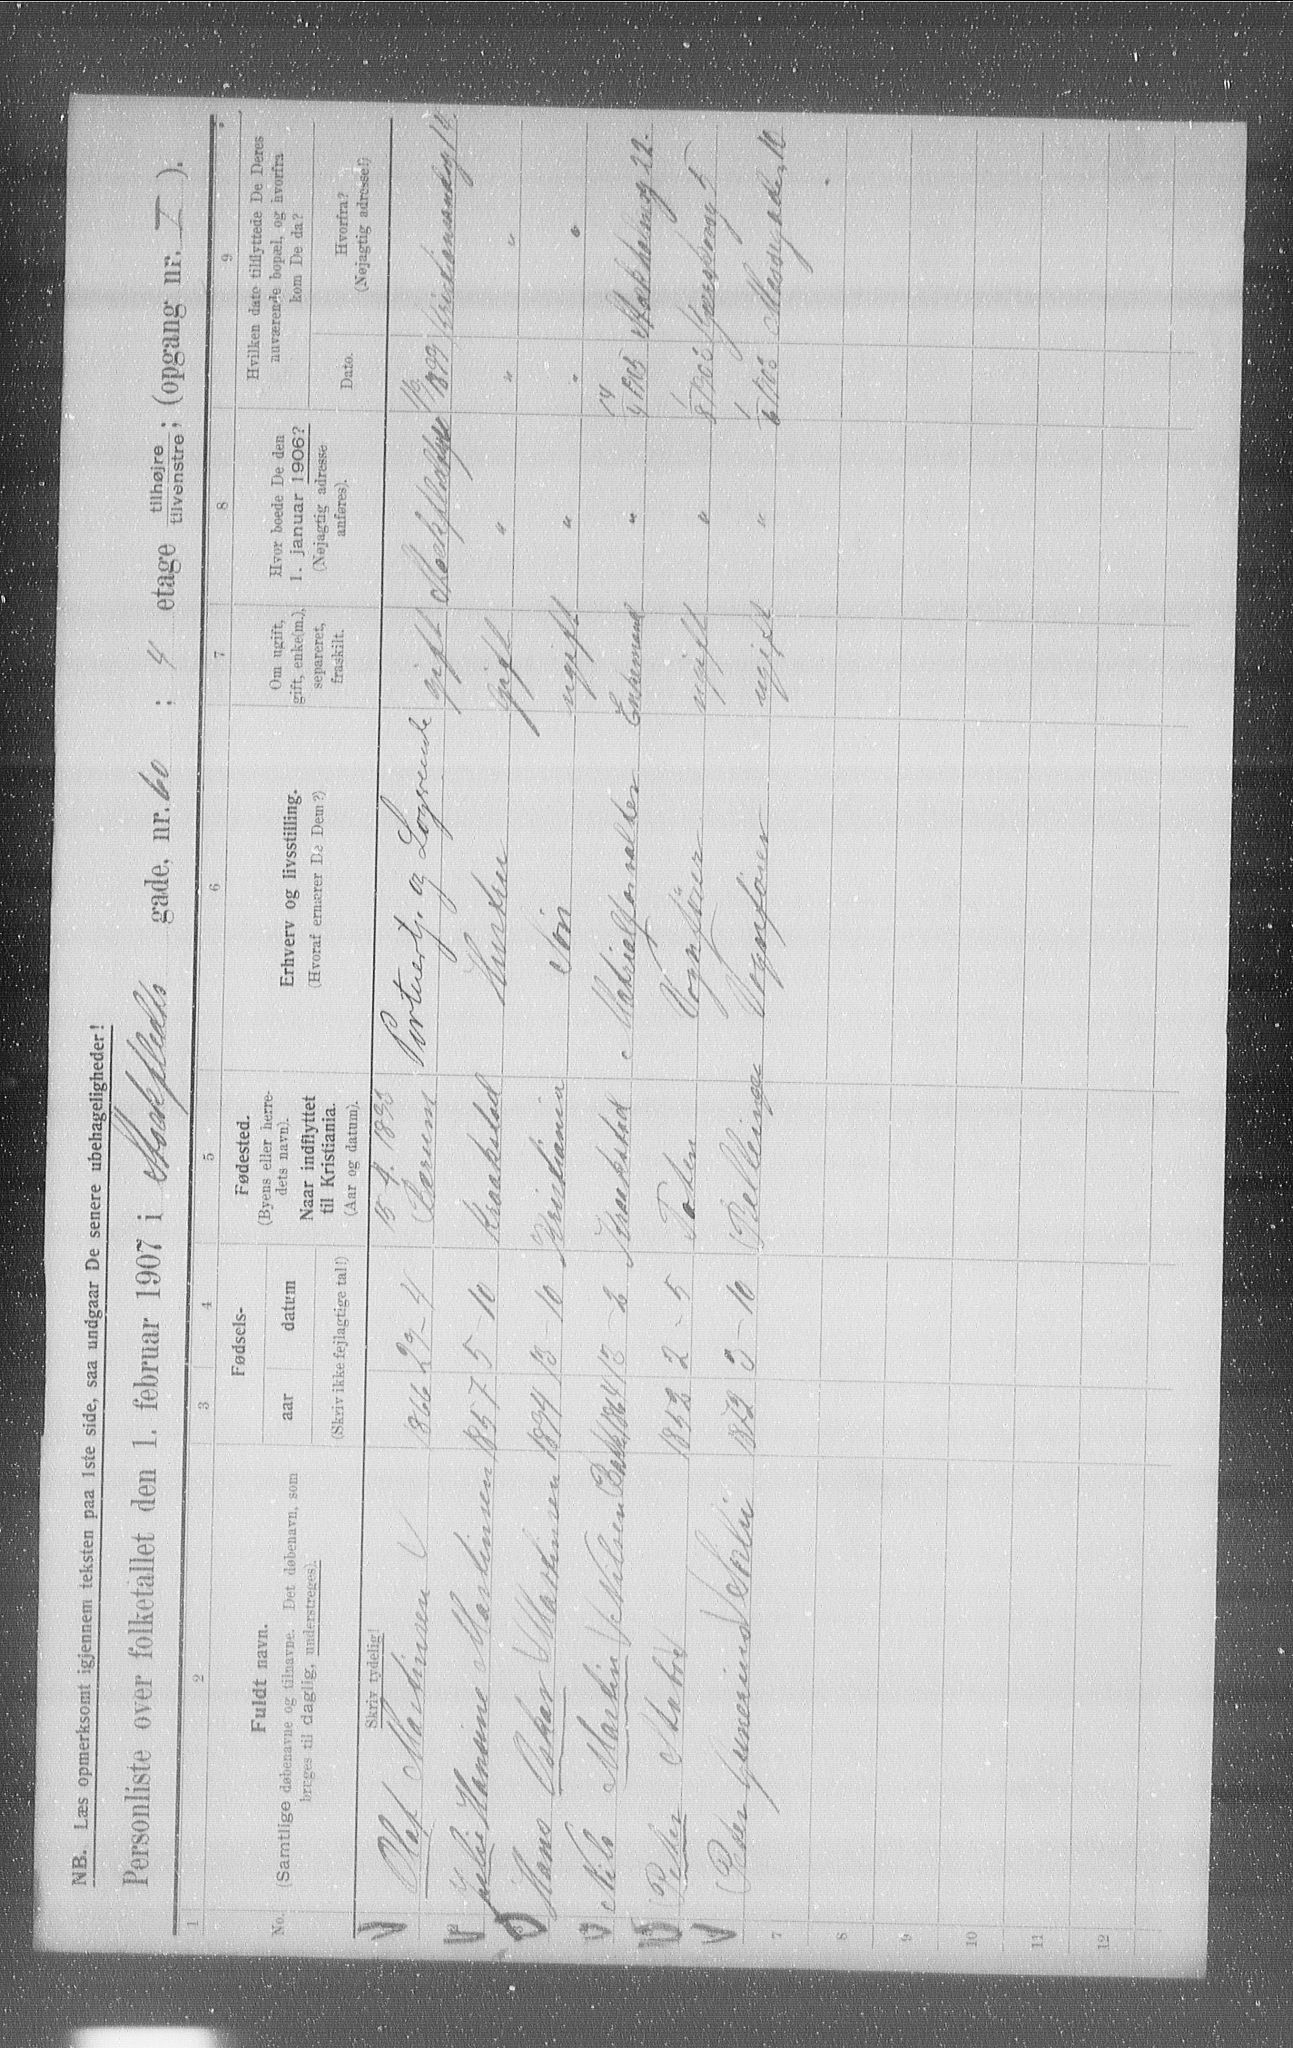 NB. Læs opmerksomt igjennem teksten paa 1ste side, saa undgaar De senere ubehageligheder!
Personliste over folketallet den 1. februar 1907 i Stockfleths gade, nr. 60 ; 4 etage tilhøjre / tilvenstre; (opgang nr. I).
1 2 3 4 5 6 7 8 9
No. Fuldt navn. (Samtlige døbenavne og tilnavne. Det døbenavn, som bruges til daglig, understreges).
Fødsels- aar datum
Fødested. (Byens eller herredets navn). Naar indflyttet til Kristiania. (Aar og datum).
Erhverv og livsstilling. (Hvoraf ernærer De Dem?)
Om ugift, gift, enke(m.), separeret, fraskilt.
Hvor boede De den 1. januar 1906? (Nøjagtig adresse anføres).
Hvilken dato tilflyttede De Deres nuværende bopæl, og hvorfra kom De da?
Dato. Hvorfra? (Nøjagtig adresse!)
Skriv tydelig! (Skriv ikke fejlagtige tal!)
Olaf Martinsen 1866 29-4 Bærum Portnertj. og Logerende gift 1899 Kristiansandsg 14
2 Julie Hansine Martinsen 1857 5-10 Kraakstad Hustru gift " " "
3 Hans Oskar Martinsen 1894 13-10 Kristiania Søn ugift " " "
Nils Martin Nilsen 1864 Kraakstad Matrialforvalter Enkemand " 1905 Stockholmsg 22.
Peder 1852 2-5 Toten Vognfører ugift " 1
8 1903 5
Peder Gunerius Sørlie 1872 3-10 Vognfører ugift " 1
6 1903 10
7
8
9
10
11
12